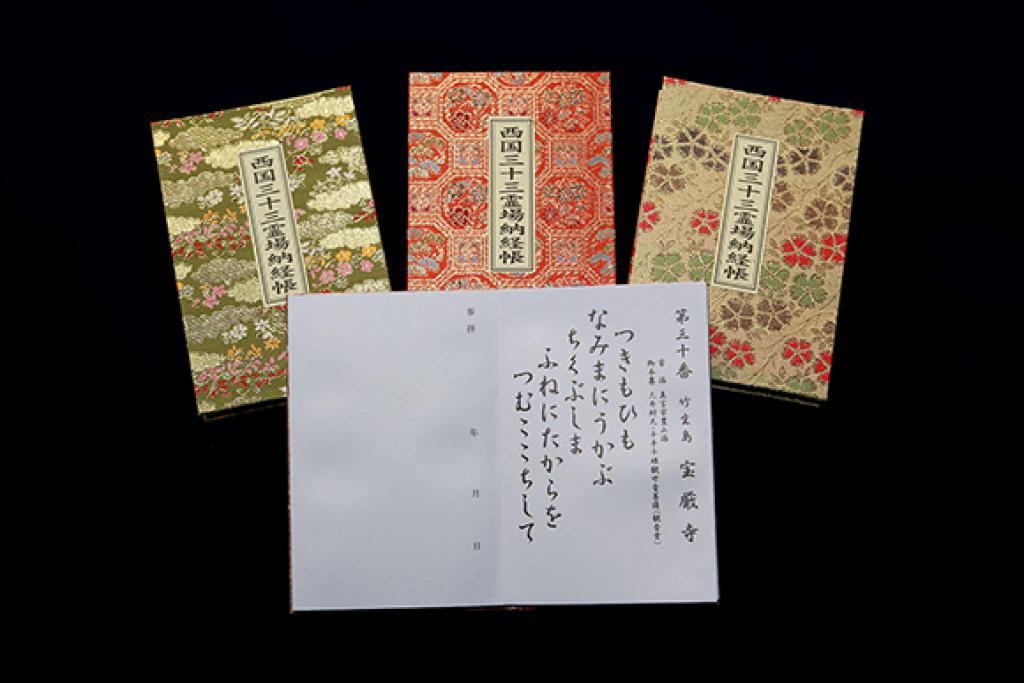 西国三十三霊場納経帳
西国三十三霊場納経帳
西国三十三霊場納経帳
第三十番 竹生島 宝厳寺
宗派 真言宗豊山派
御本尊 大弁財天・千手千眼観世音菩薩(観音堂)
つきもひも
なみまにうかぶ
ちくぶしま
ふねにたからを
つむここちして
参拝 年 月 日